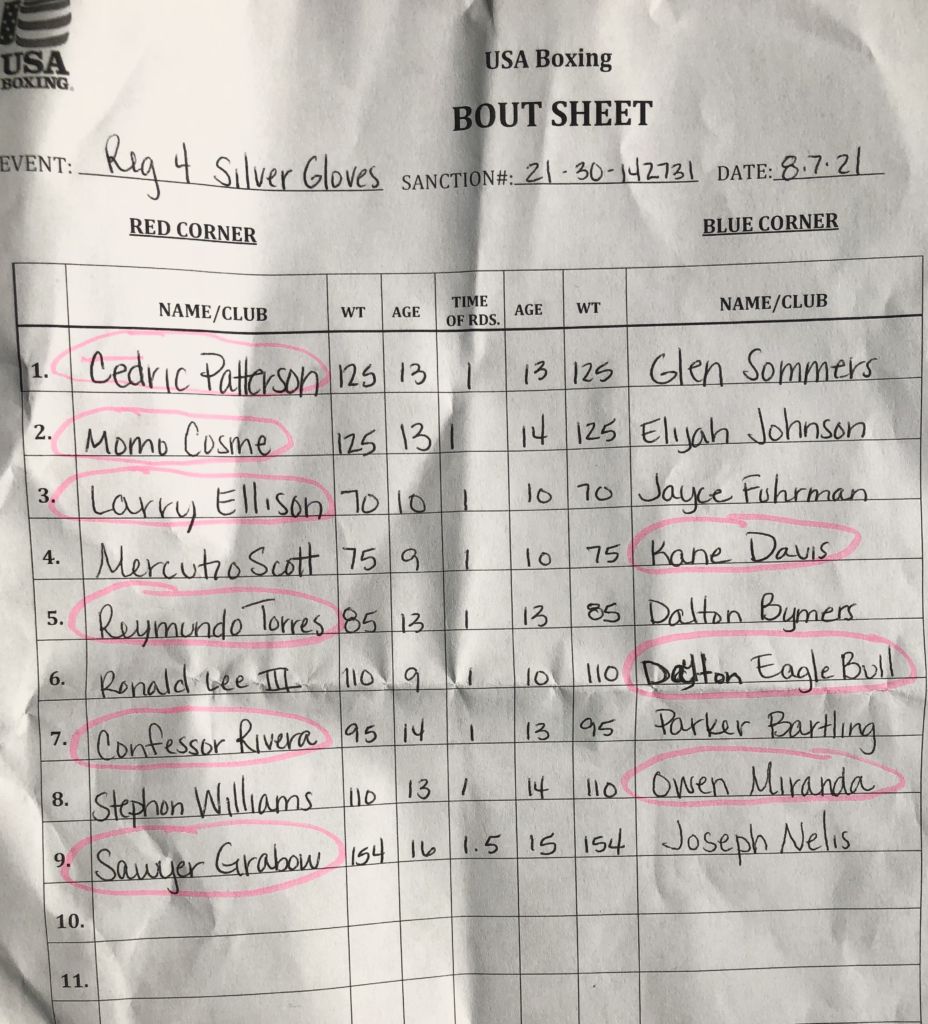 USA
BOXING.
USA Boxing
BOUT SHEET
EVENT: Reg 4 Silver Gloves SANCTION#: 21-30-142731 DATE: 8.7.21
RED CORNER BLUE CORNER
NAME/CLUB WT AGE TIME OF RDS. AGE WT NAME/CLUB
1. Cedric Patterson 125 13 1 13 125 Glen Sommers
2. Momo Cosme 125 13 1 14 125 Elijah Johnson
3. Larry Ellison 70 10 1 10 70 Jayce Fuhrman
4. Mercutio Scott 75 9 1 10 75 Kane Davis
5. Reymundo Torres 85 13 1 13 85 Dalton Bymers
6. Ronald Lee III 110 9 1 10 110 Dayton Eagle Bull
7. Confessor Rivera 95 14 1 13 95 Parker Bartling
8. Stephon Williams 110 13 1 14 110 Owen Miranda
9. Sawyer Grabow 154 16 1.5 15 154 Joseph Nelis
10.
11.